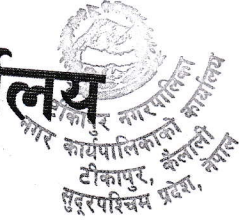 र्यालय
टीकापुर नगरपालिका
नगर कार्यपालिकाको कार्यालय
टीकापुर, कैलाली
सुदूरपश्चिम प्रदेश, नेपाल